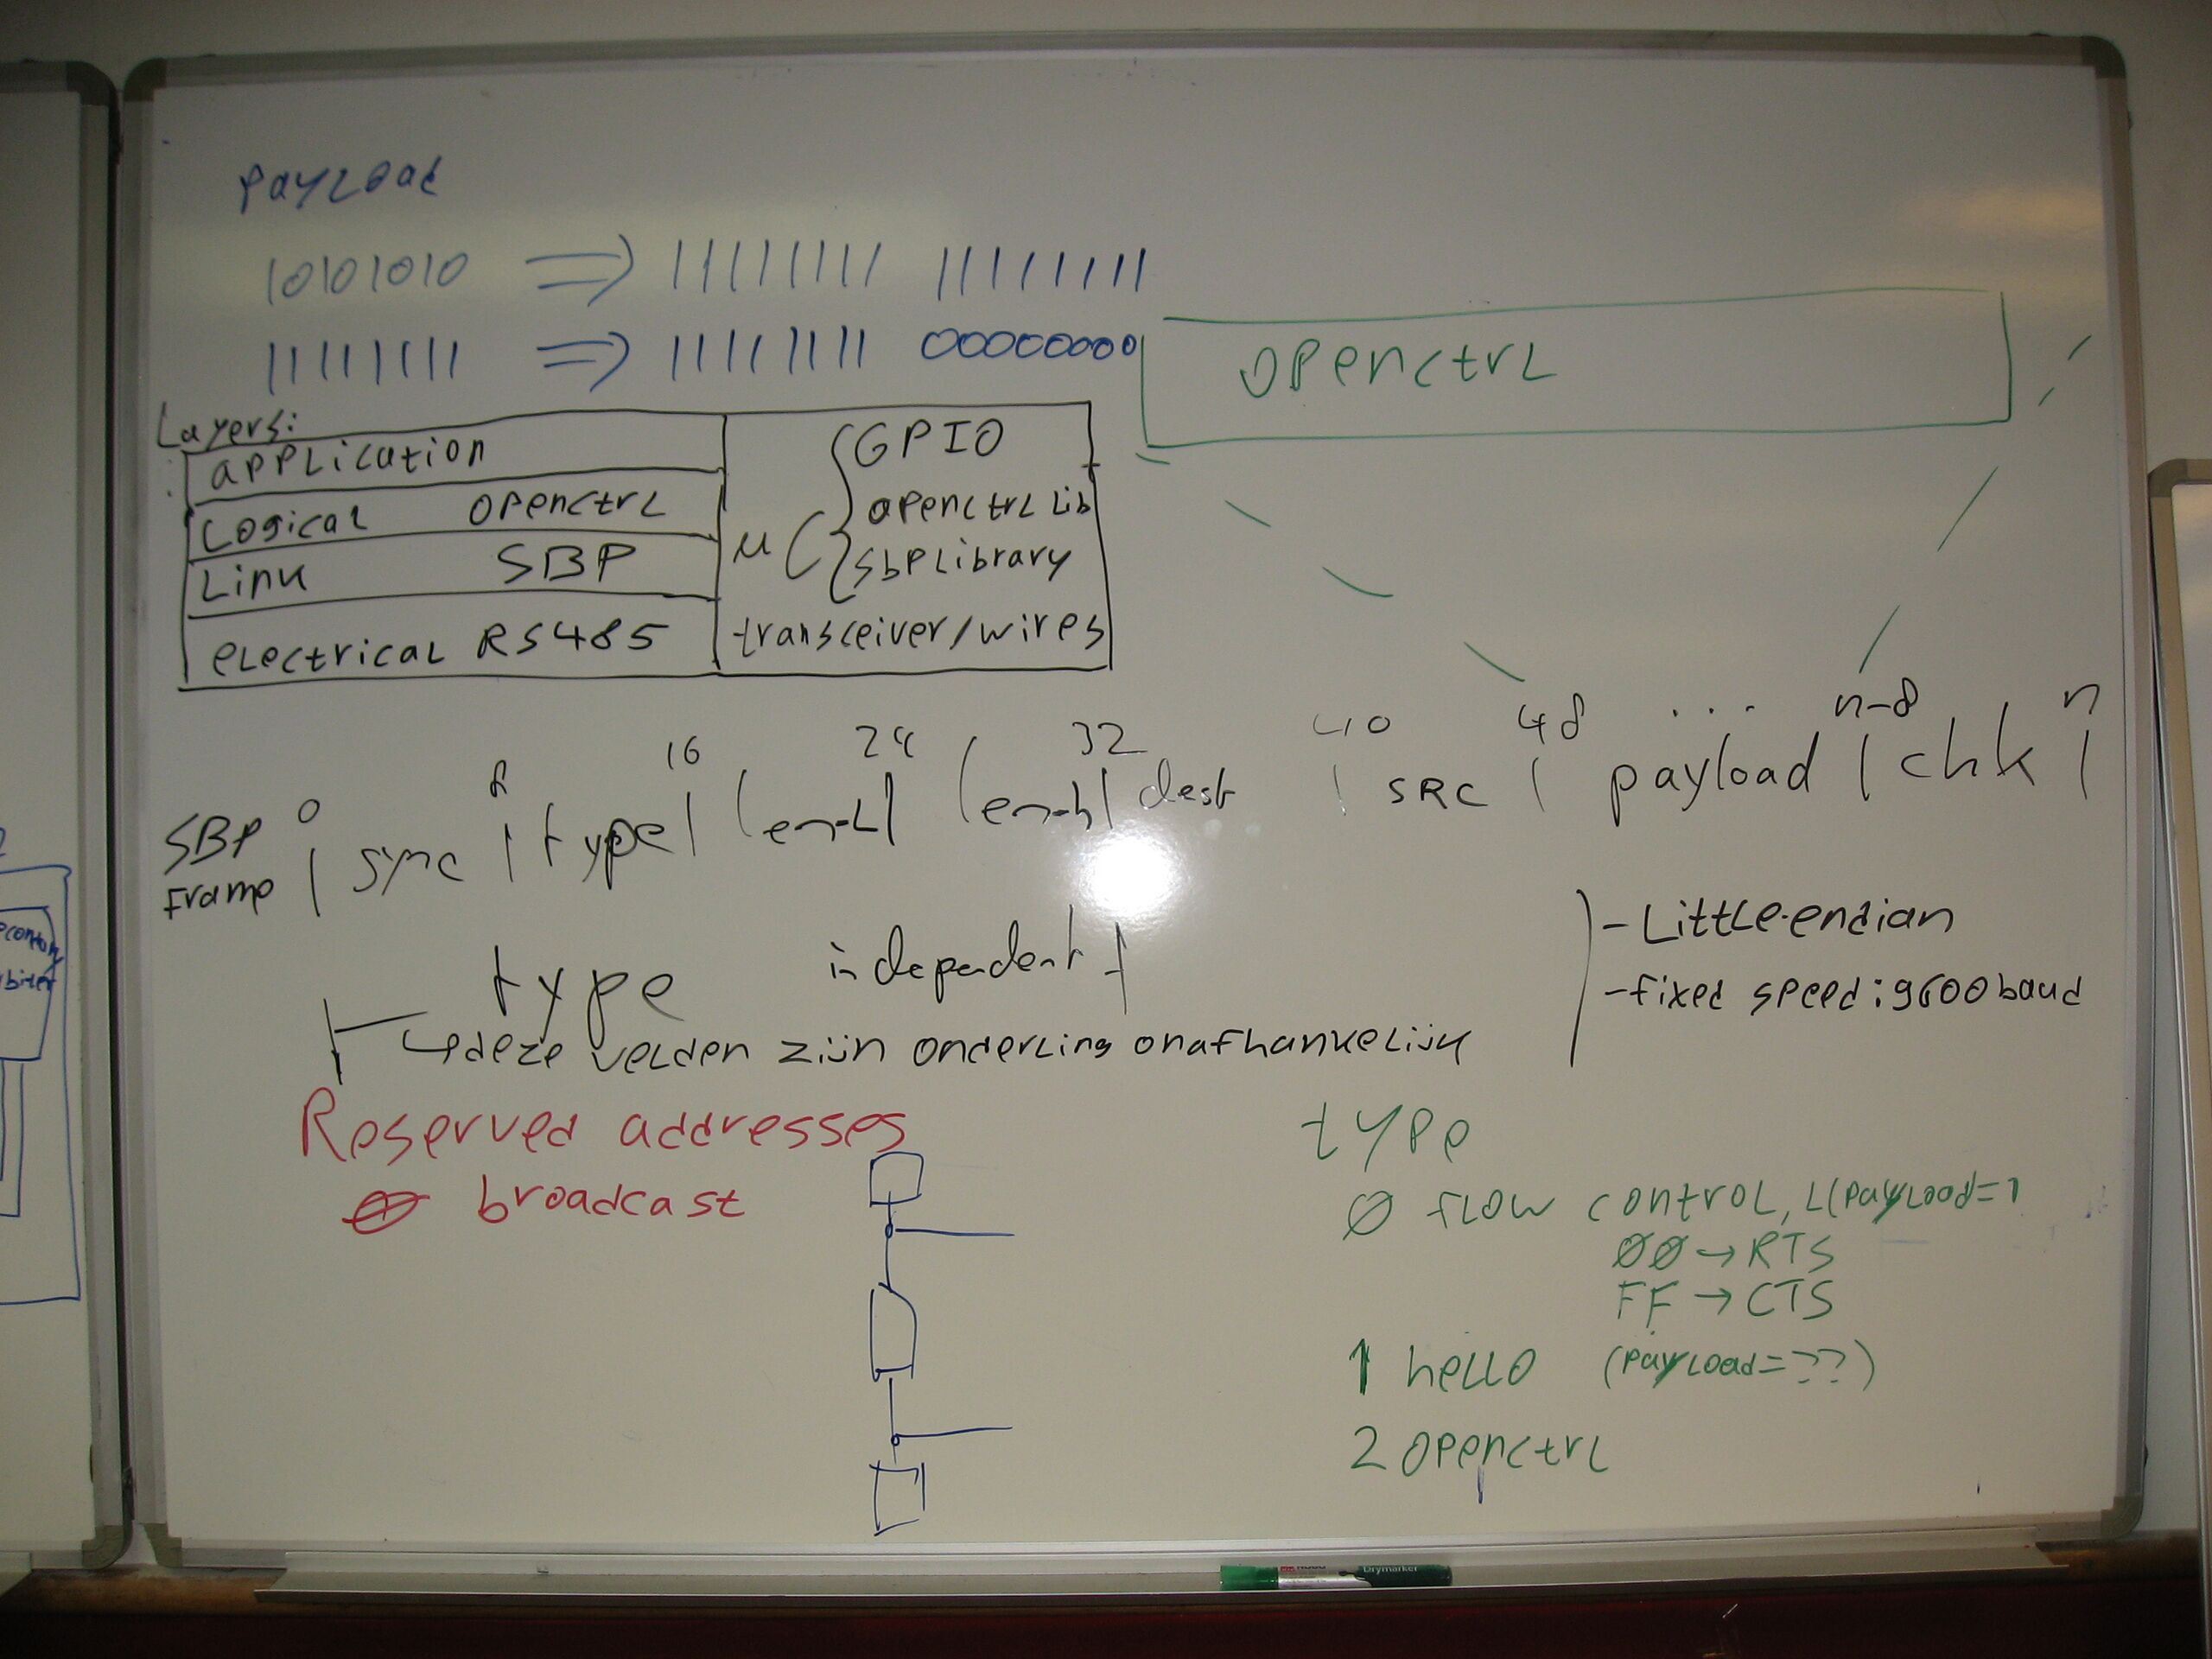 payload
10101010 ⇒ 11111111 11111111
11111111 ⇒ 11111111 00000000
openctrl
Layers:
application
Logical openctrl
Link SBP
electrical RS485
μC
GPIO
openctrl lib
sbp library
transceiver/wires
0 8 16 24 32 40 48 ... n-8 n
SBP Frame | sync | type | len-L | len-h | dest | SRC | payload | chk |
type independent
deze velden zijn onderling onafhankelijk
- Little-endian
- fixed speed: 9600 baud
Reserved addresses
0 broadcast
type
0 flow control, L(payload=1
00 → RTS
FF → CTS
1 hello (payload=??)
2 openctrl
Drymarker